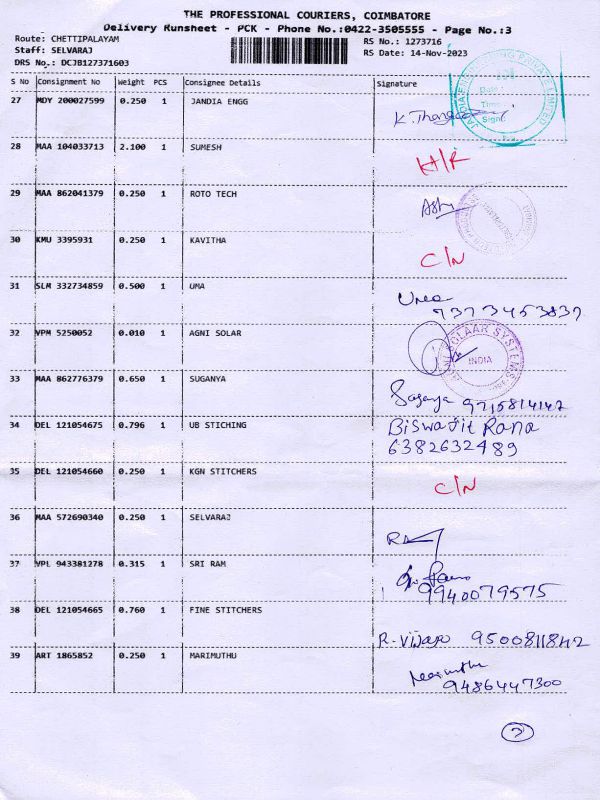 THE PROFESSIONAL COURIERS, COIMBATORE
Delivery Runsheet - PCK - Phone No.:0422-3505555 - Page No.:3
Route: CHETTIPALAYAM RS No.: 1273716
Staff: SELVARAJ RS Date: 14-Nov-2023
DRS No.: DCJB127371603
S No Consignment No Weight PCS Consignee Details Signature
27 MDY 200027599 0.250 1 JANDIA ENGG K. Thanga
28 MAA 104033713 2.100 1 SUMESH
29 MAA 862041379 0.250 1 ROTO TECH
30 KMU 3395931 0.250 1 KAVITHA C/N
31 SLM 332734859 0.500 1 UMA Uma
7373453837
32 VPM 5250052 0.010 1 AGNI SOLAR SOLAAR SYSTEMS INDIA
33 MAA 862776379 0.650 1 SUGANYA Suganya 9715814142
34 DEL 121054675 0.796 1 UB STICHING Biswajit Rana
6382632489
35 DEL 121054660 0.250 1 KGN STITCHERS C/N
36 MAA 572690340 0.250 1 SELVARAJ
37 VPL 943381278 0.315 1 SRI RAM
9940079575
38 DEL 121054665 0.760 1 FINE STITCHERS R. Vijaya 9500811842
39 ART 1865852 0.250 1 MARIMUTHU Marimuthu
9486447300